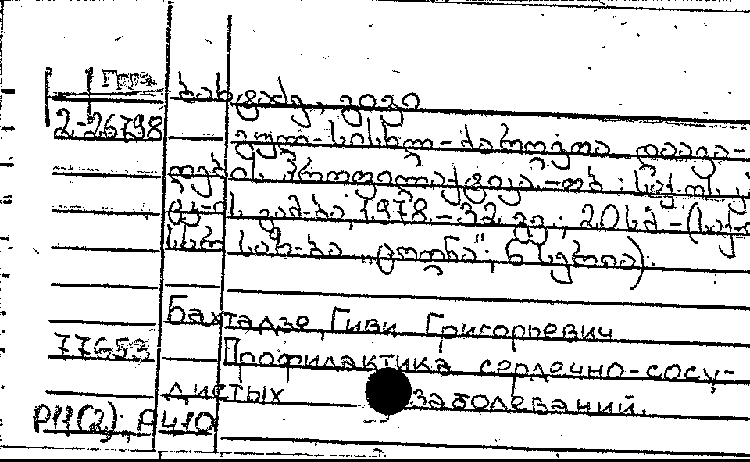 Груз.
ბახტაძე, გივი
2-26798 გულ-სისხლ-ძარღვთა დაავა-
დების პროფილაქტიკა.-თბ.: საქ.
გამ-ბა, 1978.-32 გვ.; 20სმ-(საქ-
საზ-ბა „ცოდნა“; 6 სერია).
Бахтадзе, Гиви Григорьевич
77653 Профилактика сердечно-сосу-
дистых заболеваний.
P11(2); P410